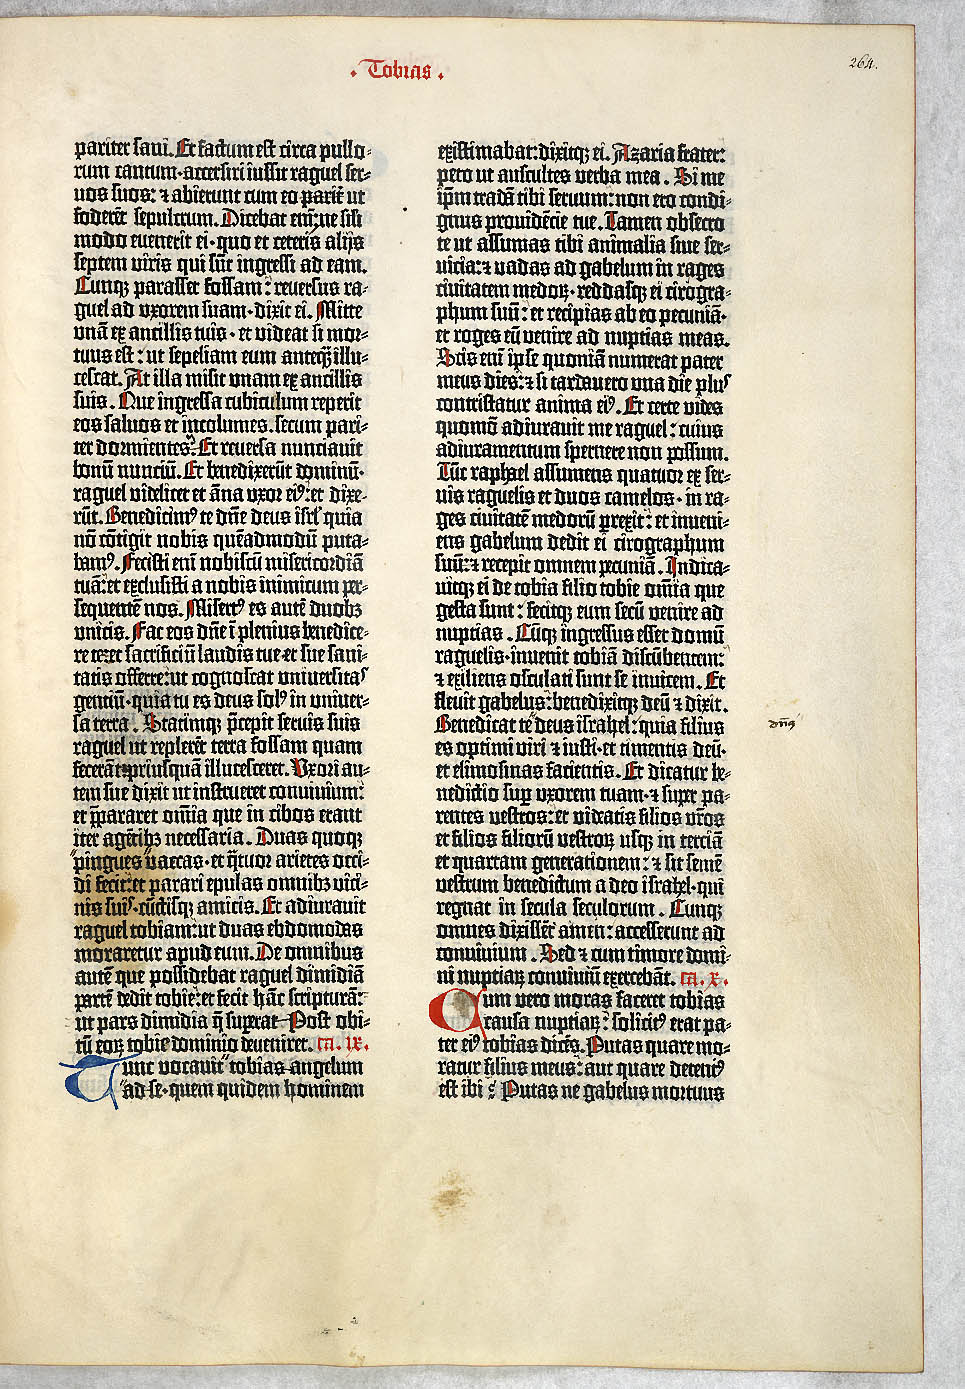 · Tobias ·
264.
pariter sani. Et factum est circa pullo-
rum cantum· accersiri iussit raguel ser-
uos suos: ⁊ abierunt cum eo parit̄ ut
foderēt sepulcrum. Dicebat eni̅: ne sili
modo euenerit ei· quo et ceteris alijs
septem viris qui sūt ingressi ad eam.
Cunqꝫ parasset fossam: reuersus ra-
guel ad vxorem suam· dixit ei. Mitte
vnā ex ancillis tuis· et videat si mor-
tuus est: ut sepeliam eum anteq̄ illu-
cescat. At illa misit vnam ex ancillis
suis. Que ingressa cubiculum reperit
eos saluos et incolumes. secum pari-
ter dormientes. Et reuersa nunciauit
bonū nunciū. Et benedixerūt dominū·
raguel videlicet et āna vxor eiꝰ: et dixe-
rūt. Benedicimꝰ te dn̄e deus isrl̓ quia
nō cōtigit nobis quēadmodū puta-
bamꝰ. Fecisti eni̅ nobiscū misericordiā
tuā: et exclusisti a nobis inimicum per-
sequentē nos. Misertꝰ es autē duobꝫ
vnicis. Fac eos dn̄e i̅ plenius benedice-
re te: et sacrificiū laudis tue et sue sani-
tatis offerre: ut cognoscat vniuersitas
gentiū· quia tu es deus solꝰ in vniuer-
sa terra. Statimqꝫ p̄cepit seruis suis
raguel ut replerēt terra fossam quam
fecerāt· priusquā illucesceret. Vxori au-
tem sue dixit ut instrueret conuiuium:
et p̄pararet om̄ia que in cibos erant
iter agētibꝫ necessaria. Duas quoqꝫ
pingues vaccas· et q̄tuor arietes occi-
di fecit: et parari epulas omnibꝫ vici-
nis suis· cūctisqꝫ amicis. Et adiurauit
raguel tobiam: ut duas ebdomodas
moraretur apud eum. De omnibus
autē que possidebat raguel dimidiā
partē dedit tobie: et fecit hāc scripturā:
ut pars dimidia q̄ superat· Post obi-
tū eorꝝ tobie dominio deueniret. ca. ix.
Tunc vocauit tobias angelum
ad se· quem quidem hominem
existimabat: dixitqꝫ ei. Azaria frater:
peto ut auscultes verba mea. Si me
ip̄m tradā tibi seruum: non ero condi-
gnus prouidēcie tue. Tamen obsecro
te ut assumas tibi animalia siue ser-
uicia: ⁊ vadas ad gabelum in rages
ciuitatem medorꝝ· reddasqꝫ ei cirogra-
phum suū: et recipias ab eo pecuniā·
et roges eū venire ad nuptias meas.
Scis eni̅ ipse quoniā numerat pater
meus dies: ⁊ si tardauero vna die plus
contristatur anima eiꝰ. Et certe vides
quomō adiurauit me raguel: cuius
adiuramentum spernere non possum.
Tūc raphael assumens quatuor ex ser-
uis raguelis et duos camelos· in ra-
ges ciuitatē medorū perrexit: et inueni-
ens gabelum dedit ei cirographum
suū: ⁊ recepit omnem pecuniā. Indica-
uitqꝫ ei de tobia filio tobie om̄ia que
gesta sunt: fecitqꝫ eum secū venire ad
nuptias. Cūqꝫ ingressus esset domū
raguelis· inuenit tobiā discūbentem:
⁊ exiliens osculati sunt se inuicem. Et
fleuit gabelus: benedixitqꝫ deū ⁊ dixit.
Benedicat te deus israhel: quia filius
es optimi viri ⁊ iusti· et timentis deū·
et elimosinas facientis. Et dicatur be-
nedictio sup̄ vxorem tuam· ⁊ super pa-
rentes vestros: et videatis filios vr̄os
et filios filiorū vestrorꝝ usqꝫ in terciā
et quartam generationem: ⁊ sit semē
vestrum benedictum a deo israhel· qui
regnat in secula seculorum. Cunqꝫ
omnes dixissēt amen: accesserunt ad
conuiuium. Sed ⁊ cum timore domi-
ni nuptiarꝝ conuiuiū exercebāt. ca. x.
Cum vero moras faceret tobias
causa nuptiarꝝ: solicitꝰ erat pa-
ter eiꝰ tobias dicēs. Putas quare mo-
ratur filius meus: aut quare detentꝰ
est ibi? Putas ne gabelus mortuus